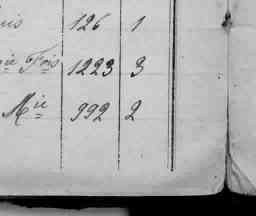 126 1
ie Fois 1223 3
Mie 992 2